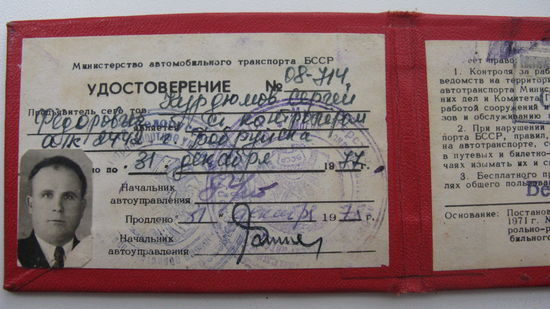 Министерство автомобильного транспорта БССР
УДОСТОВЕРЕНИЕ № 08-714
Предъявитель сего тов. Курдюмов Сергей
Федорович является контролером
г. Бобруйска
по " 31 " декабря 1977 г.
Начальник
автоуправления
Продлено " 31 " декабря 197 г.
Начальник
автоуправления
еет право:
1. Контроля за раб
ведомств на территори
автотранспорта Минис
них дел и Комитета
работой сооружений
и обслуживанию
2. При нарушении
порта БССР, правил
на автотранспорте, со
в путевых и билетно-
чаях изымать их и с
3. Бесплатного пр
лях общего пользован
Основание: Постанов
1971 г. №
рольно-р
бильного